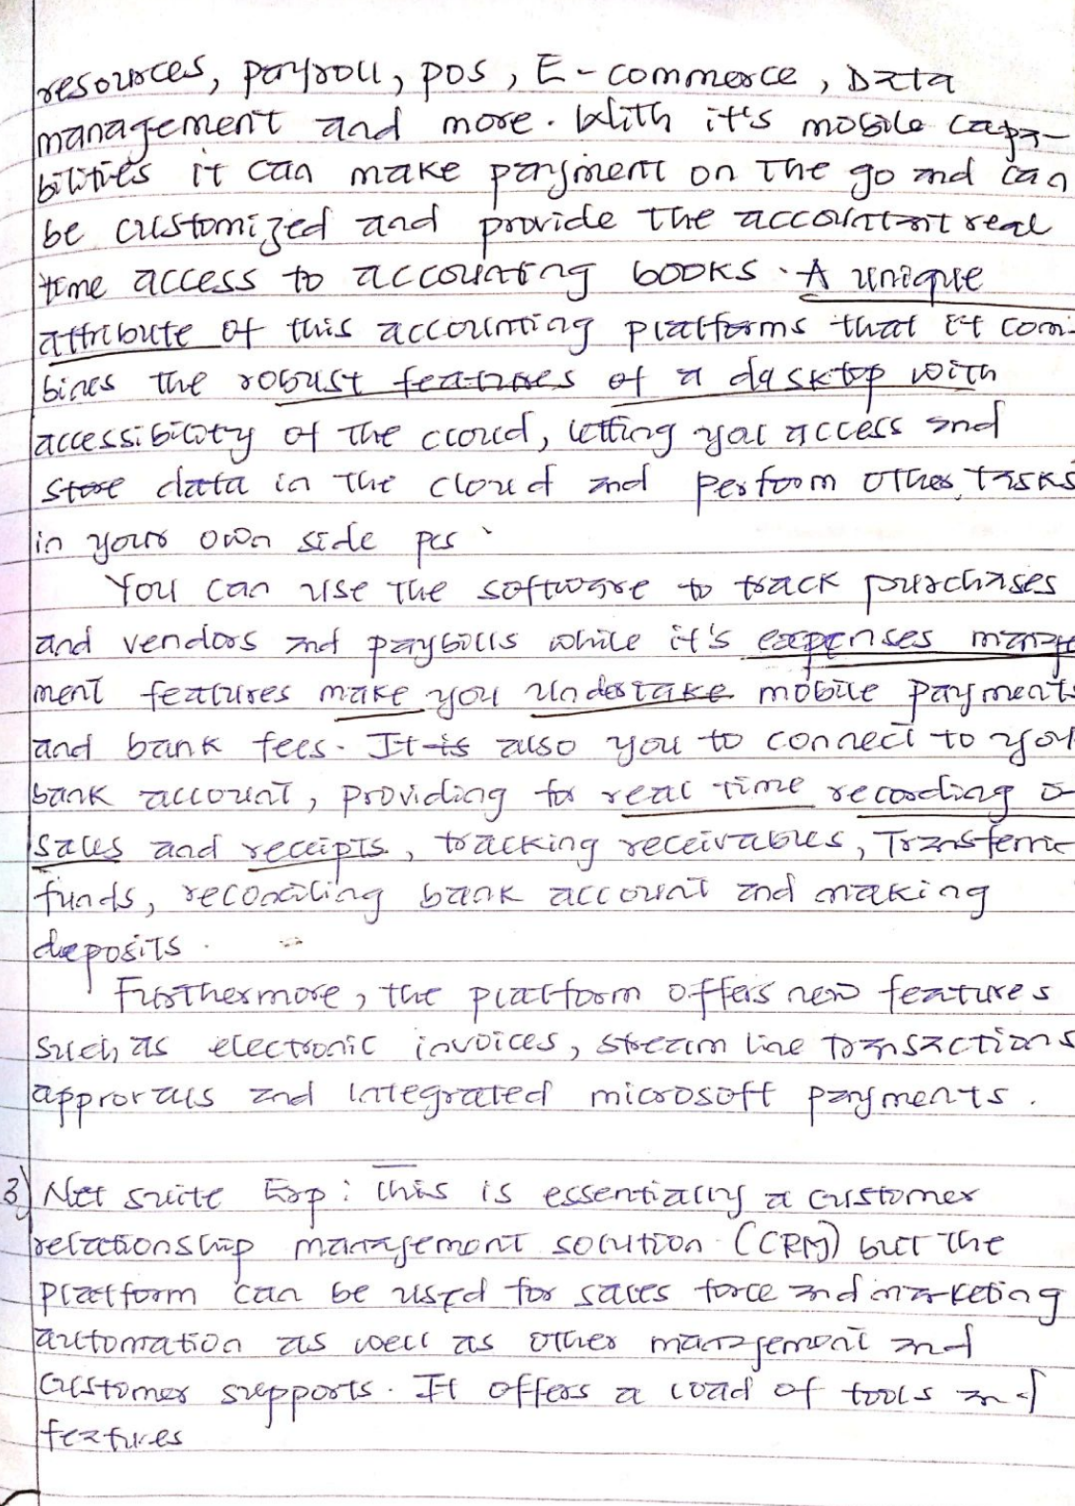 resources, payroll, pos, E-commerce, Data
management and more. With it's mobile capa-
bilities it can make payment on the go and can
be customized and provide the accountant real
time access to accounting books. A unique
attribute of this accounting platforms that it com-
bines the robust features of a desktop with
accessibility of the cloud, letting you access and
store data in the cloud and perform other tasks
in your own side pcs.
You can use the software to track purchases
and vendors and paybills while it's expenses manage
ment features make you undertake mobile payments
and bank fees. It is also you to connect to you
bank account, providing for real time recording o
sales and receipts, tracking receivables, Transferri
funds, reconciling bank account and making
deposits.
Furthermore, the platform offers new features
such as electronic invoices, stream line transactions
approvals and integrated microsoft payments.
3) Net suite Erp: This is essentially a customer
relationship management solution (CRM) but the
platform can be used for sales force and marketing
automation as well as other management and
customer supports. It offers a load of tools and
features